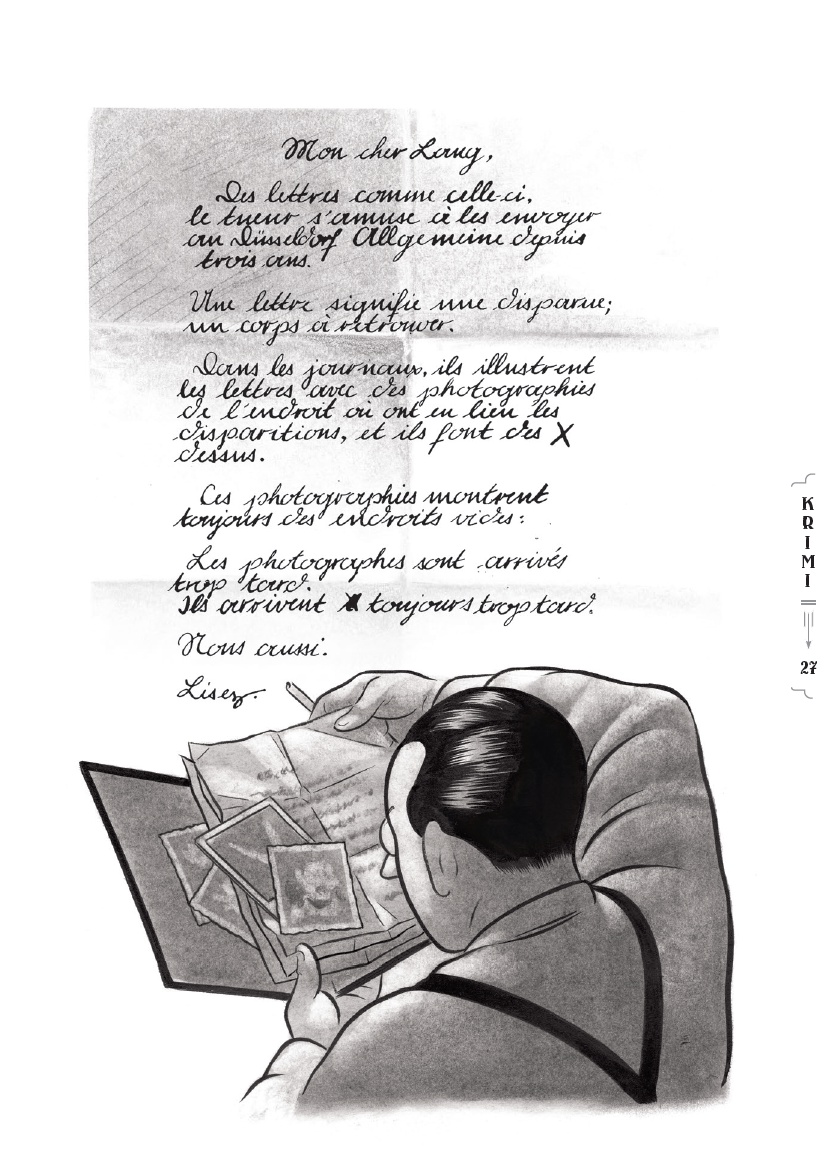 Mon cher Lang,
Des lettres comme celle-ci,
le tueur s'amuse à les envoyer
au Düsseldorf Allgemeine depuis
trois ans.
Une lettre signifie une disparue;
un corps à retrouver.
Dans les journaux, ils illustrent
les lettres avec des photographies
de l'endroit où ont eu lieu les
disparitions, et ils font des X
dessus.
Ces photographies montrent
toujours des endroits vides:
Les photographes sont arrivés
trop tard.
Ils arrivent toujours trop tard.
Nous aussi.
Lisez.
KRIMI
27